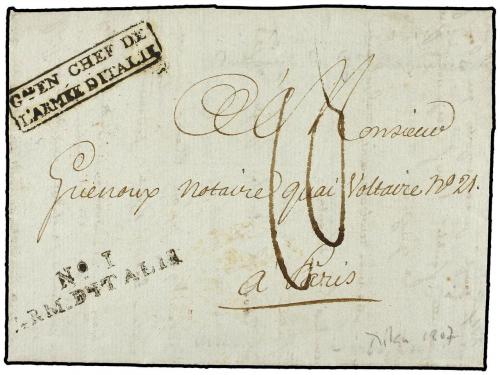 Gal EN CHEF DE
L'ARMÉE D'ITALIE
A Monsieur
Guenoux notaire quai Voltaire No 21.
10
No. 1
ARM. D'ITALIE
à Paris
Milan 1807